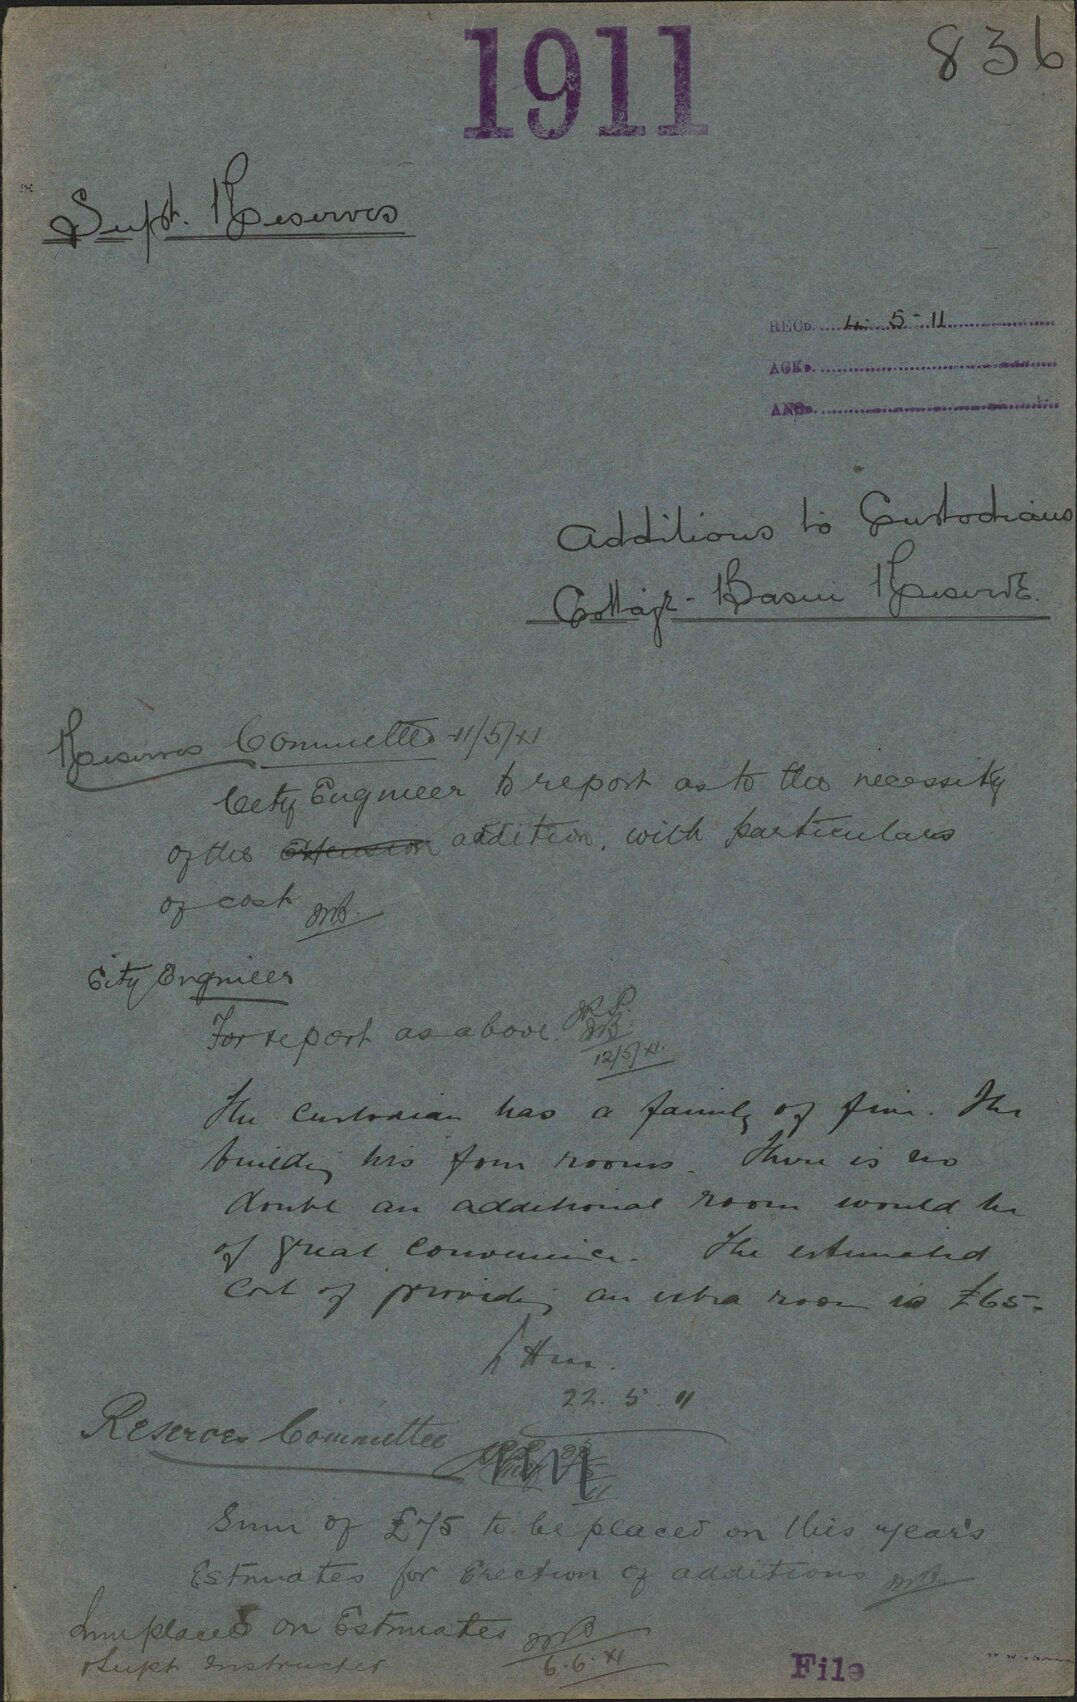 1911
836
Supt. Reserves
RECD. 4. 5-11
ACKD.
ANSD.
Additions to Custodians
Cottage - Basin Reserve.
Reserves Committee 11/5/11
City Engineer to report as to the necessity
of the Extension addition, with particulars
of cost
City Engineer
For report as above
12/5/11.
The custodian has a family of five. The
building has four rooms. There is no
doubt an additional room would be
of great convenience. The estimated
cost of providing an extra room is £65-
22. 5. 11
Reserves Committee
Sum of £75 to be placed on this year's
Estimates for Erection of additions
Sum placed on Estimates
Supt instructed
6.6.11
File